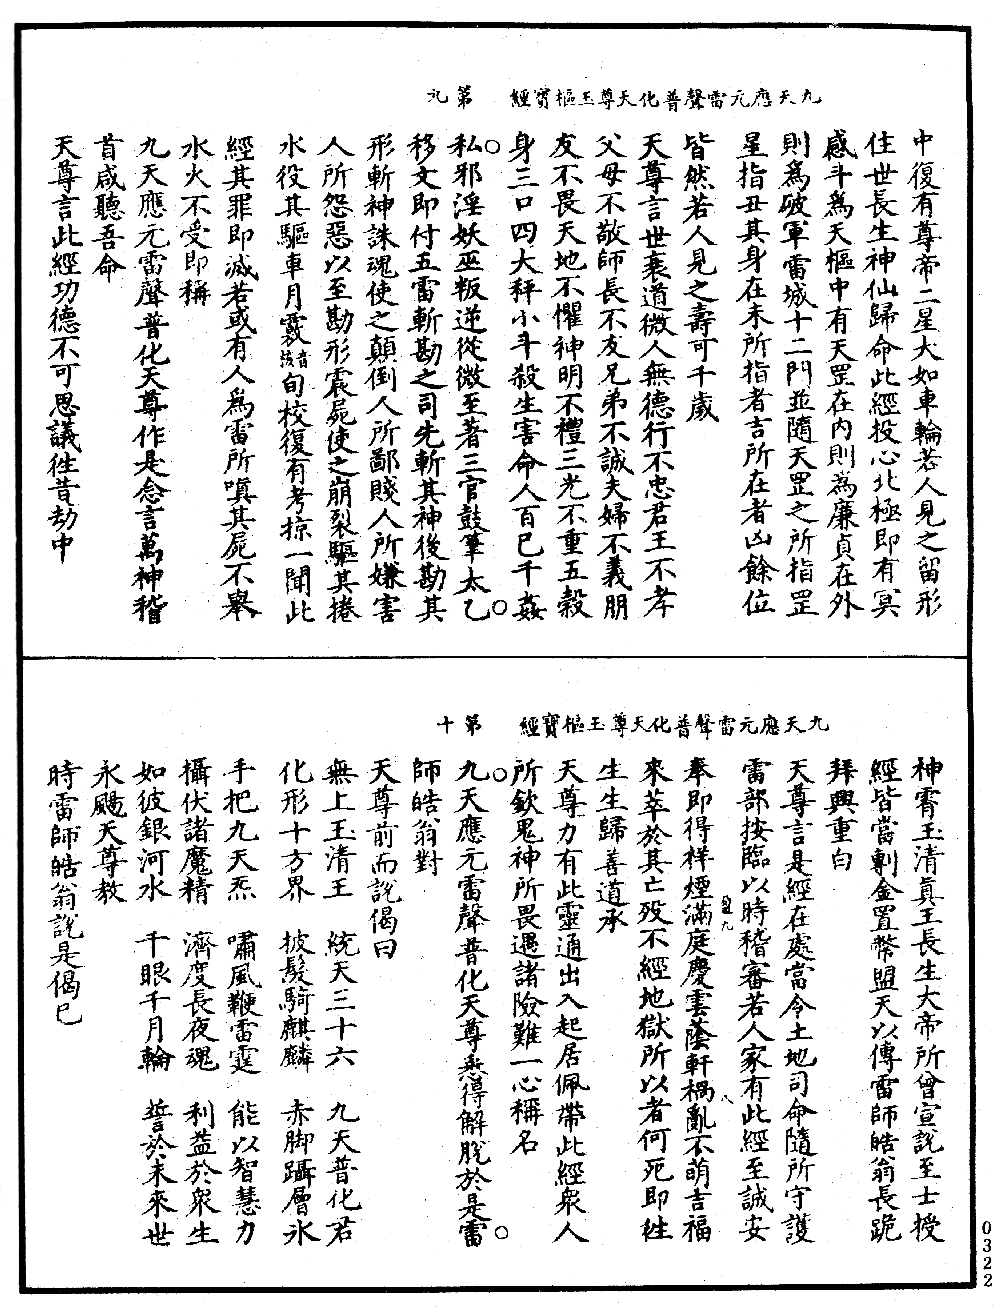 九天應元雷聲普化天尊玉樞寶經　第九
中復有尊帝二星大如車輪若人見之留形
住世長生神仙歸命此經投心北極即有冥
感斗爲天樞中有天罡在內則為廉貞在外
則爲破軍雷城十二門並隨天罡之所指罡
星指丑其身在未所指者吉所在者凶餘位
皆然若人見之壽可千歲
天尊言世衰道微人無德行不忠君王不孝
父母不敬師長不友兄弟不誠夫婦不義朋
友不畏天地不懼神明不禮三光不重五穀
身三口四大秤小斗殺生害命人百已千姦
私邪淫妖巫叛逆從微至著三官鼓筆太乙
移文即付五雷斬勘之司先斬其神後勘其
形斬神誅魂使之顛倒人所鄙賤人所嫌害
人所怨惡以至勘形震屍使之崩裂驅其捲
水役其驅車月覈音該旬校復有考掠一聞此
經其罪即滅若或有人爲雷所嗔其屍不舉
水火不受即稱
九天應元雷聲普化天尊作是念言萬神稽
首咸聽吾命
天尊言此經功德不可思議徃昔劫中
九天應元雷聲普化天尊玉樞寶經　第十
神霄玉清真王長生大帝所曾宣說至士授
經皆當剸金置幣盟天以傳雷師皓翁長跪
拜興重白
天尊言是經在處當令土地司命隨所守護
雷部按臨以時稽審若人家有此經至誠安
奉即得祥煙滿庭慶雲蔭軒禍亂不萌吉福
來萃於其亡歿不經地獄所以者何死即徃
生生歸善道承
天尊力有此靈通出入起居佩帶此經衆人
所欽鬼神所畏遇諸險難一心稱名
九天應元雷聲普化天尊悉得解脫於是雷
師皓翁對
天尊前而說偈曰
無上玉清王　統天三十六　九天普化君
化形十方界　披髮騎麒麟　赤脚躡層氷
手把九天炁　嘯風鞭雷霆　能以智慧力
攝伏諸魔精　濟度長夜魂　利益於衆生
如彼銀河水　千眼千月輪　誓於未來世
永颺天尊教
時雷師皓翁說是偈已
0322